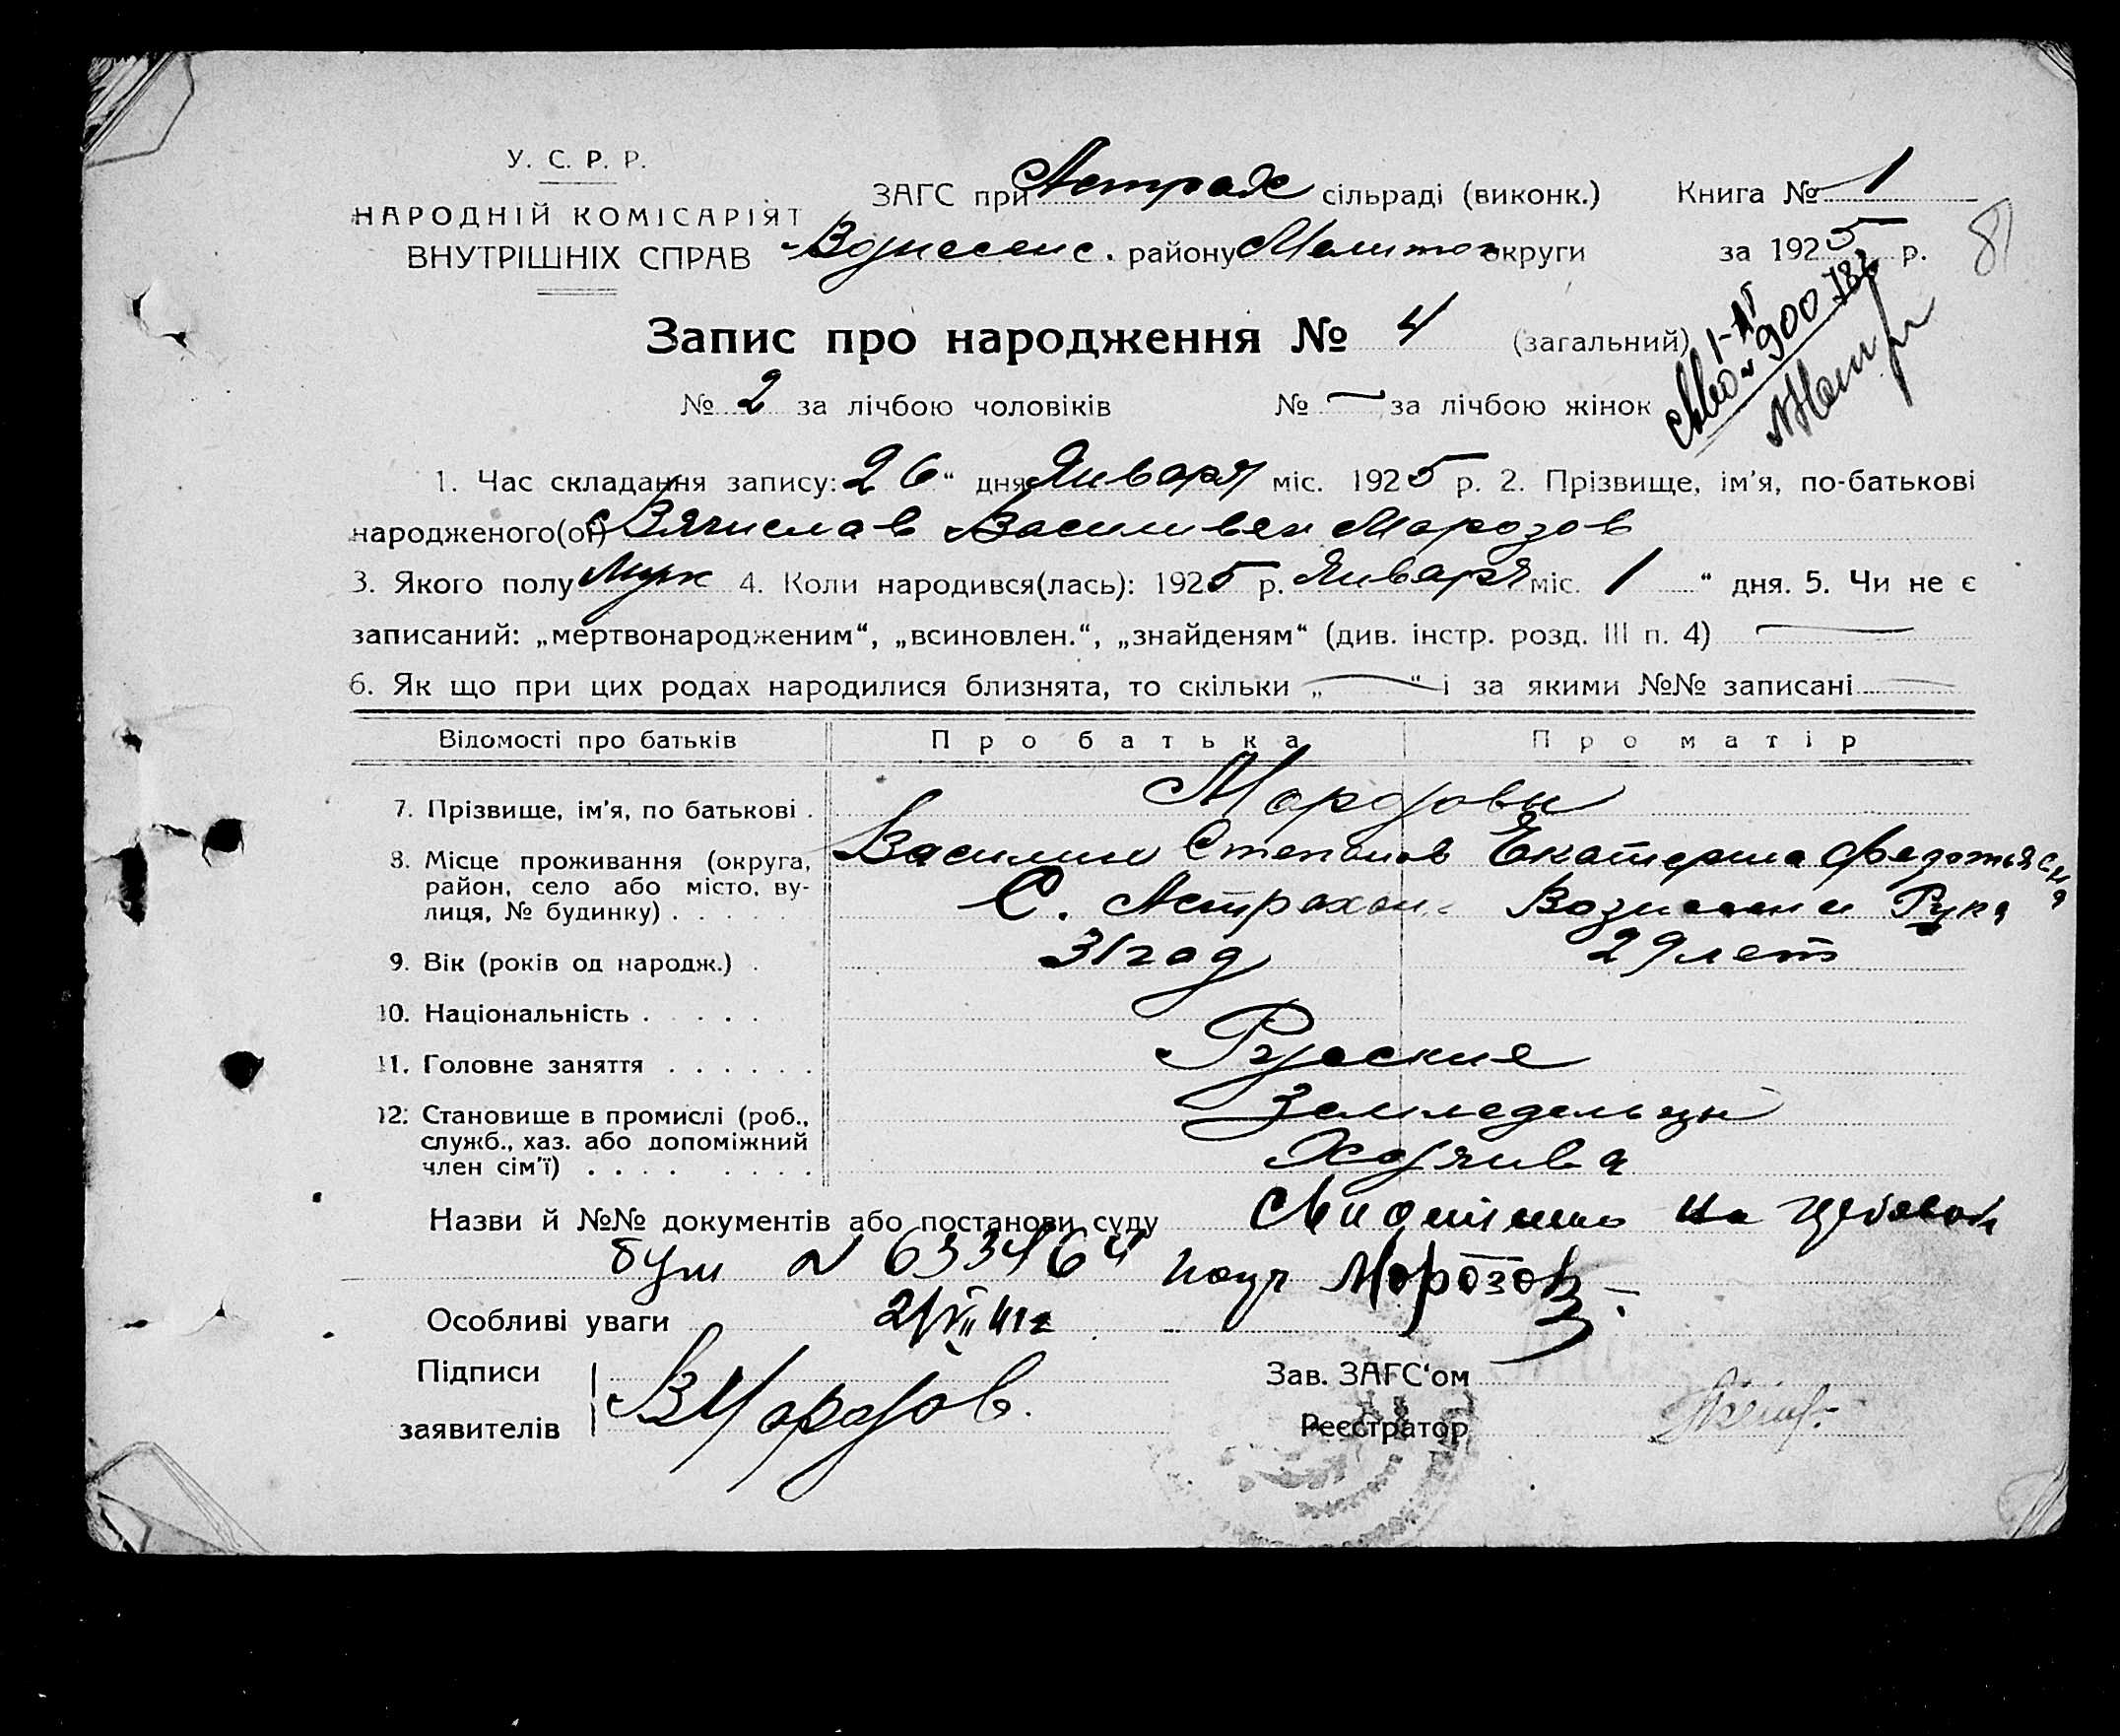 У. С. Р. Р.
НАРОДНІЙ КОМІСАРІЯТ
ВНУТРІШНІХ СПРАВ
ЗАГС при Астрах сільраді (виконк.) Книга № 1
Вознесенс. району Мелитоп округи за 1925 р.
81
Запис про народження № 4 (загальний)
№ 2 за лічбою чоловіків № — за лічбою жінок
1. Час складання запису: 26 " дня Января міс. 1925 р. 2. Прізвище, ім'я, по-батькові
народженого(ої) Вячислав Васильевич Морозов
3. Якого полу Муж 4. Коли народився(лась): 1925 р. Января міс. 1 " дня. 5. Чи не є
записаний: „мертвонародженим“, „всиновлен.“, „знайденям“ (див. інстр. розд. III п. 4) —
6. Як що при цих родах народилися близнята, то скільки „ — “ і за якими №№ записані —
Відомості про батьків Про батька Про матір
7. Прізвище, ім'я, по батькові . Морозовы
Василий Степанов Екатерина Федотьясна
8. Місце проживання (округа, район, село або місто, вулиця, № будинку) . . . . . С. Астрахан
9. Вік (років од народж.) . 31 год 29 лет
10. Національність . . . . . Русские
11. Головне заняття . . . . . . Земледельцы
12. Становище в промислі (роб., служб., хаз. або допоміжний член сім'ї) . . . . . . . . . Хозяива
Назви й №№ документів або постанови суду
бум № 633464 Морозов
Особливі уваги
Підписи
заявителів ВМорозов.
Зав. ЗАГС'ом
Реєстратор